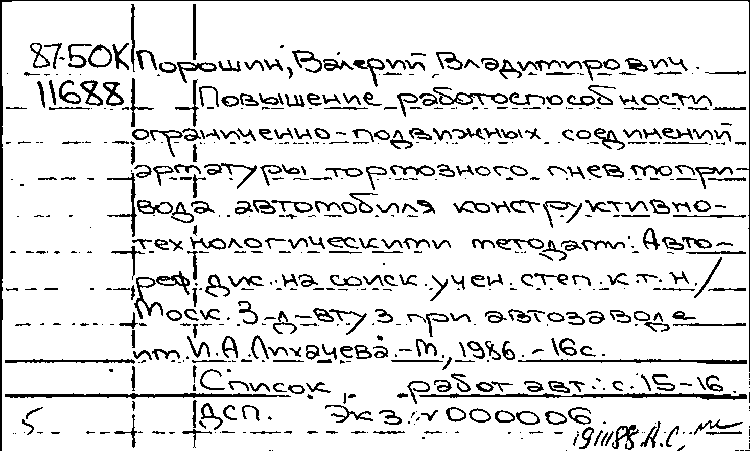 87-50К Порошин, Валерий Владимирович.
11688 Повышение работоспособности
ограниченно-подвижных соединений
арматуры тормозного пневмопри-
вода автомобиля конструктивно-
технологическими методами: Авто-
реф. дис. на соиск. учен. степ. к.т.н./
Моск. З-д-втуз при автозаводе
им И.А.Лихачева.-М., 1986.-16с.
Список работ авт.: с.15-16.
5 ДСП. Экз.: 000006.